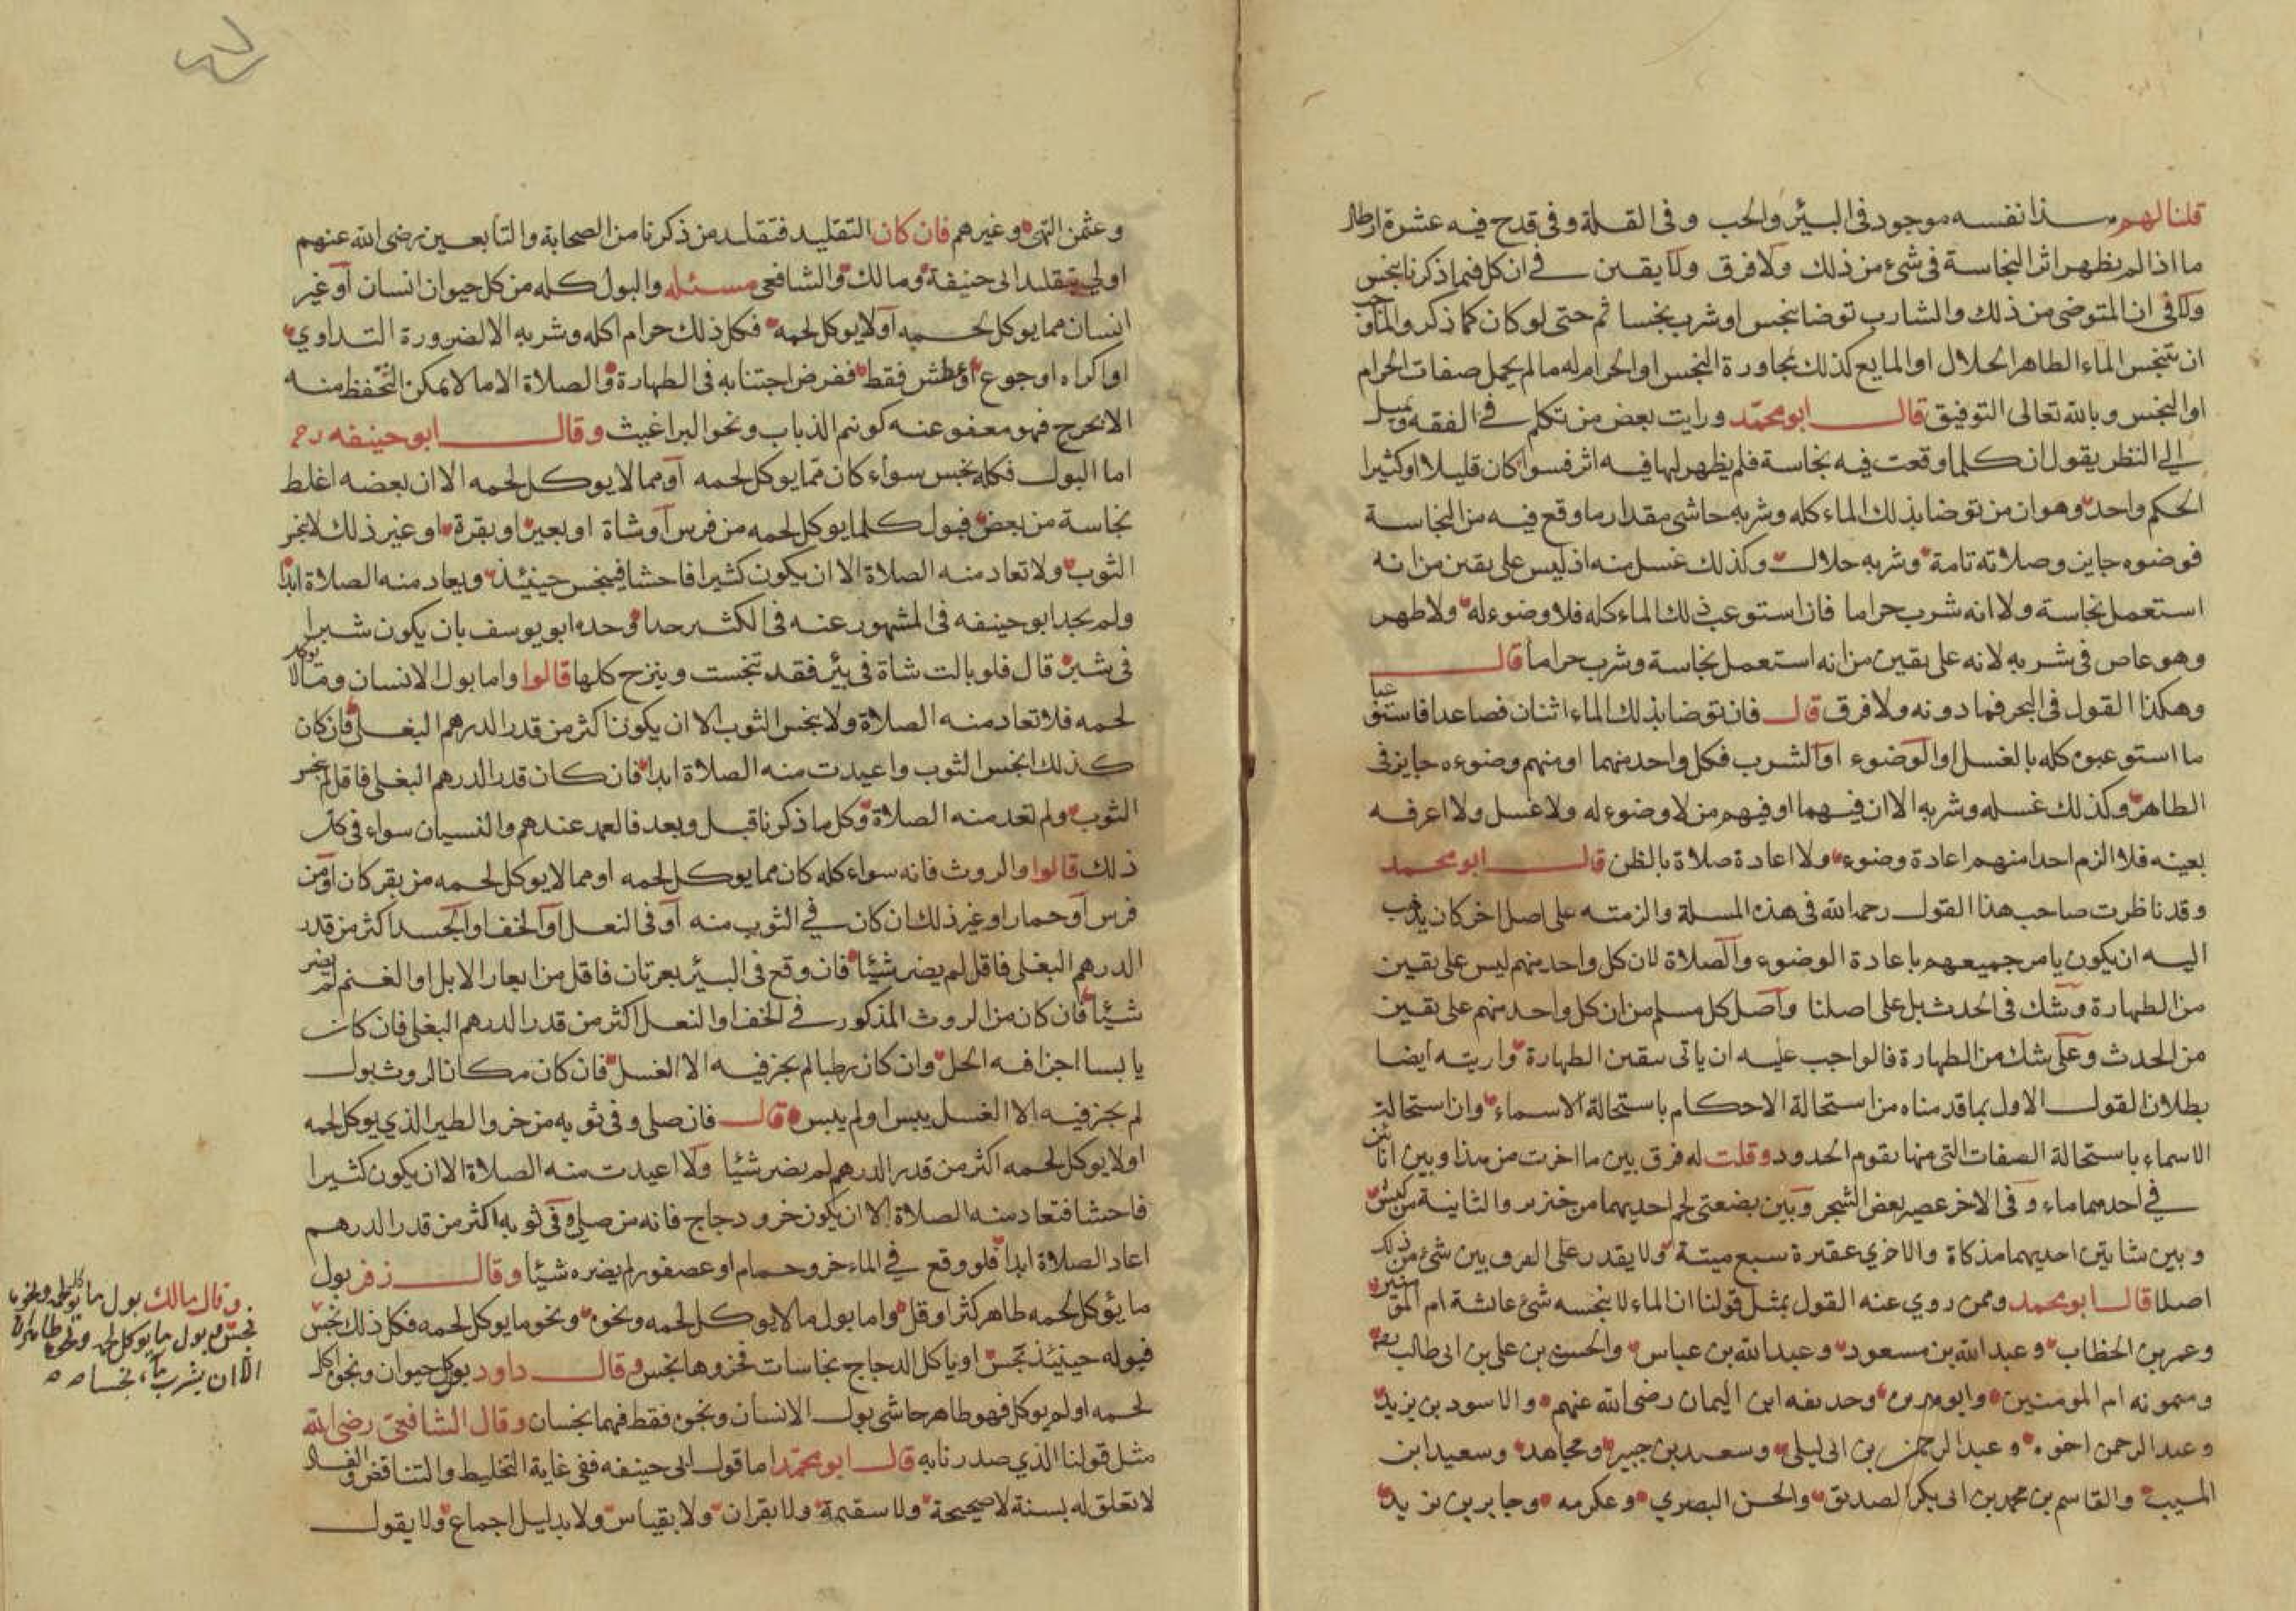 قلنا لهم هذا نفسه موجود في البئر والجب وفي القلة وفي قدح فيه عشرة ارطال
ما اذا لم يظهر اثر النجاسة في شيء من ذلك ولا فرق ولا يقين في ان كل فيما ذكرنا بنجس
ولا في ان المتوضي من ذلك والشارب توضا بنجس او شرب نجسا ثم حتى لو كان كما ذكروا لما وجب
ان يتنجس الماء الطاهر الحلال او المايع كذلك بمجاورة النجس او الحرام له ما لم يحمل صفات الحرام
او النجس وبالله تعالى التوفيق قال ابو محمد ورايت بعض من تكلم في الفقه ويميل
الى النظر يقول ان كل ما وقعت فيه نجاسة فلم يظهر لها فيه اثر فسوا كان قليلا او كثيرا
الحكم واحد وهو ان من توضا بذلك الماء كله وشربه حاشى مقدار ما وقع فيه من النجاسة
فوضوه جايز وصلاته تامة وشربه حلال وكذلك غسل منه اذ ليس على يقين من انه
استعمل نجاسة ولا انه شرب حراما فان استوعب ذلك الماء كله فلا وضوء له ولا طهر
وهو عاص في شربه لانه على يقين من انه استعمل نجاسة وشرب حراما قال
وهكذا القول في البحر فما دونه ولا فرق قال فان توضا بذلك الماء اثنان فصاعدا فاستوعبا
ما استوعبوه كله بالغسل او الوضوء او الشرب فكل واحد منهما او منهم وضوءه جايز في
الظاهر وكذلك غسله وشربه الا ان فيهما او فيهم من لا وضوء له ولا غسل ولا اعرفه
بعينه فلا الزم احدا منهم اعادة وضوء ولا اعادة صلاة بالظن قال ابو محمد
وقد ناظرت صاحب هذا القول رحمه الله في هذه المسلة والزمته على اصل اخر كان يذهب
اليه ان يكون يامر جميعهم باعادة الوضوء والصلاة لان كل واحد منهم ليس على يقيين
من الطهارة وشك في الحدث بل على اصلنا واصل كل مسلم من ان كل واحد منهم على يقين
من الحدث وعلى شك من الطهارة فالواجب عليه ان ياتي بيقين الطهارة واريته ايضا
بطلان القول الاول بما قدمناه من استحالة الاحكام باستحالة الاسماء وان استحالة
الاسماء باستحالة الصفات التي منها يقوم الحدود وقلت له فرق بين ما اخرت من هذا وبين اناءين
في احدهما ماء وفي الاخر عصير بعض الشجر وبين بضعتي لحم احديهما من خنزير والثانية من كبش
وبين شاتين احديهما مذكاة والاخري عقيرة سبع ميتة ولا يقدر على الفرق بين شئ من ذلك
اصلا قال ابو محمد وممن روي عنه القول بمثل قولنا ان الماء لا ينجسه شئ عائشة ام المؤمنين
وعمر بن الخطاب وعبد الله بن مسعود وعبد الله بن عباس والحسن بن علي بن ابي طالب
وميمونه ام المومنين وابو هريرة وحذيفه ابن اليمان رضي الله عنهم والاسود بن يزيد
وعبد الرحمن اخوه وعبد الرحمن بن ابي ليلى وسعيد بن جبير ومجاهد وسعيد ابن
المسيب والقاسم بن محمد بن ابي بكر الصديق والحسن البصري وعكرمه وجابر بن زيد
وعثمن البتي وغيرهم فان كان التقليد فتقليد من ذكرنا من الصحابة والتابعين رضي الله عنهم
اولى من تقليد ابى حنيفة ومالك والشافعي مسئله والبول كله من كل حيوان انسان او غير
انسان مما يوكل لحمه او لا يوكل لحمه فكل ذلك حرام اكله وشربه الا لضرورة التداوي
او اكراه او جوع او عطش فقط ففرض اجتنابه في الطهارة والصلاة الا ما لا يمكن التحفظ منه
الا بحرج فهو معفو عنه كونيم الذباب ونحو البراغيث وقال ابو حنيفه رحمه
اما البول فكله نجس سواء كان مما يوكل لحمه او مما لا يوكل لحمه الا ان بعضه اغلظ
نجاسة من بعض فبول كل ما يوكل لحمه من فرس او شاة او بعير او بقرة او غير ذلك لا ينجس
الثوب ولا تعاد منه الصلاة الا ان يكون كثيرا فاحشا فينجس حينئذ ويعاد منه الصلاة ابدا
ولم يحد ابو حنيفه في المشهور عنه في الكثير حدا وحده ابو يوسف بان يكون شبرا
في شبر قال فلو بالت شاة في بئر فقد تنجست وينزح كلها قالوا واما بول الانسان وما لا يوكل
لحمه فلا تعاد منه الصلاة ولا ينجس الثوب الا ان يكون اكثر من قدر الدرهم البغلي فان كان
كذلك انجس الثوب واعيدت منه الصلاة ابدا فان كان قدر الدرهم البغلي فاقل لم ينجس
الثوب ولم تعد منه الصلاة وكل ما ذكرنا قبل وبعد فالعمد عندهم والنسيان سواء في كل
ذلك قالوا والروث فانه سواء كله كان مما يوكل لحمه او مما لا يوكل لحمه من بقر كان او من
فرس او حمار او غير ذلك ان كان في الثوب منه او في النعل او الخف او الجسد اكثر من قدر
الدرهم البغلي فاقل لم يضر شيئا فان وقع في البئر بعرتان فاقل من ابعار الابل او الغنم لم يضر
شيئا فان كان من الروث المذكور في الخف او النعل اكثر من قدر الدرهم البغلي فان كان
يابسا اجزا فيه الحك وان كان رطبا لم يجز فيه الا الغسل فان كان مكان الروث بول
لم يجز فيه الا الغسل يبس او لم ييبس قال فان صلى وفي ثوبه من خرو الطير الذي يوكل لحمه
او لا يوكل لحمه اكثر من قدر الدرهم لم يضر شيئا ولا اعيدت منه الصلاة الا ان يكون كثيرا
فاحشا فتعاد منه الصلاة الا ان يكون خرو دجاج فانه من صلى وفي ثوبه اكثر من قدر الدرهم
اعاد الصلاة ابدا فلو وقع في الماء خرو حمام او عصفور لم يضره شيئا وقال زفر بول
ما يؤكل لحمه طاهر كثر او قل واما بول ما لا يوكل لحمه ونجوه ونجو ما يوكل لحمه فكل ذلك نجس
فبوله حينئذ نجس او ياكل الدجاج نجاسات فخروها نجس وقال داود بول كل حيوان ونجوه اكل
لحمه او لم يوكل فهو طاهر حاشى بول الانسان ونجوه فقط فهما نجسان وقال الشافعي رضي الله
مثل قولنا الذي صدرنا به قال ابو محمد اما قول ابي حنيفه ففي غاية التخليط والتناقض والفساد
لا تعلق له بسنة لا صحيحة ولا سقيمة ولا بقران ولا بقياس ولا بدليل اجماع ولا يقول
وقال مالك بول ما لا يوكل لحمه ونجوه
نجس وبول ما يوكل لحمه ونجوه طاهران
الا ان يشرب ماء نجسا